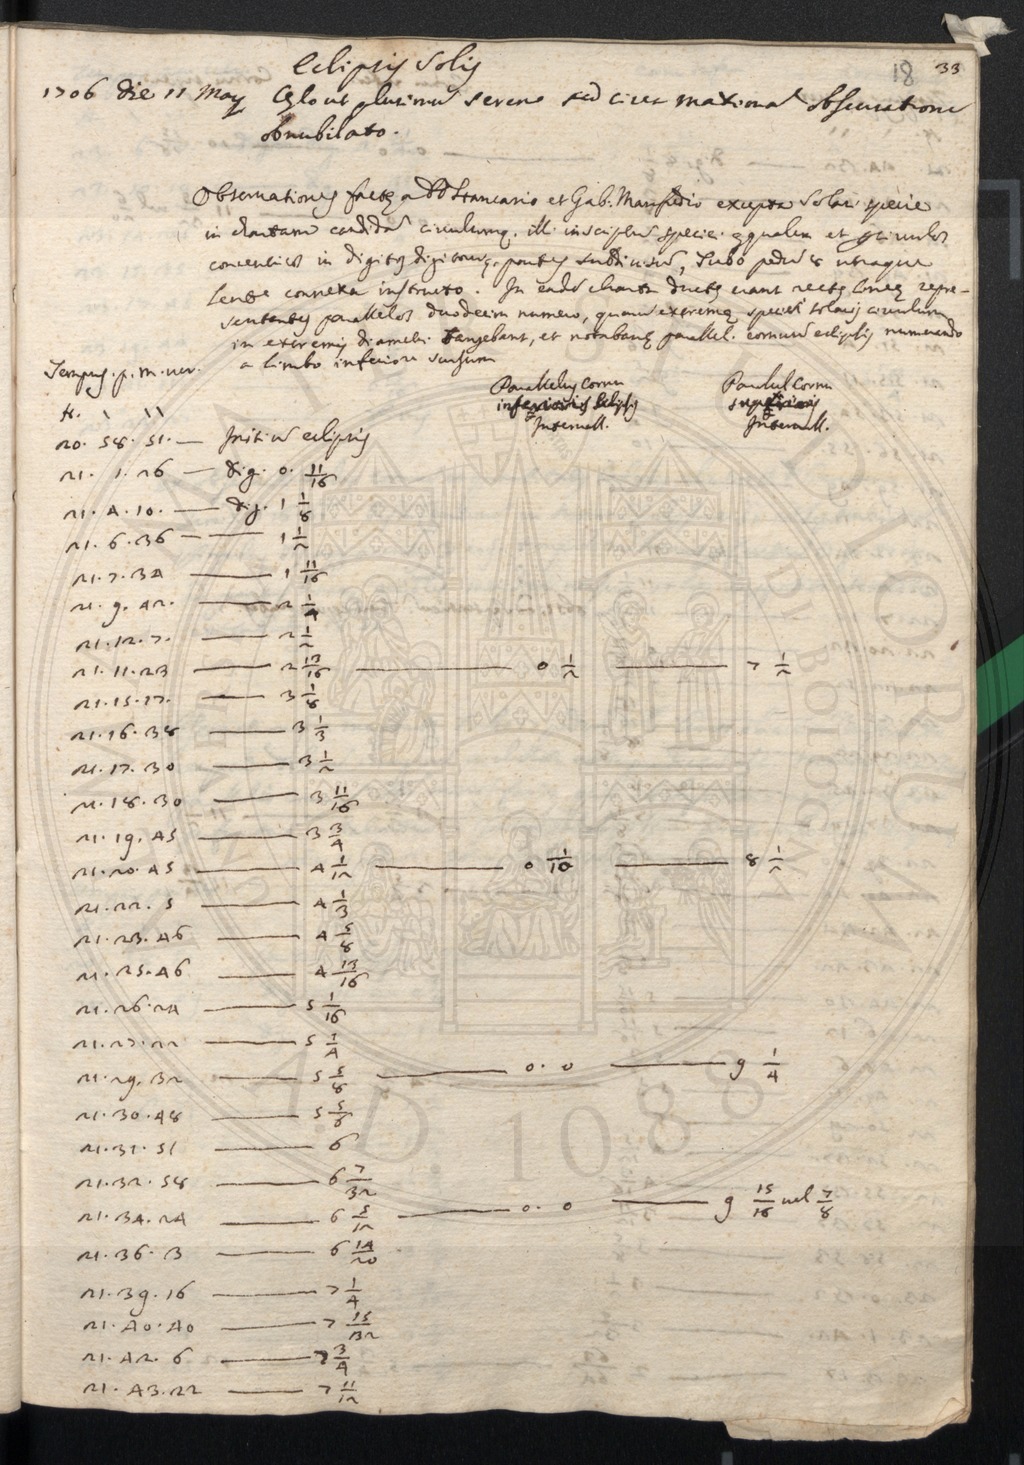 18 33
Eclipsis Solis
1706 die 11 May Cęlo ut plurimũ sereno sed circa maximã obscuratione
obnubilato.
Observationes factę a DD Stancario et Gab. Manfredio excepta Solari specie
in chartam candidã circulumq. illi inscriptũ speciei ęqualem et circulos
concentricos in digitos digitorũq. partes subdivisũ, Tubo pedũ 8 utraque
lente connexa instructo. In eadẽ charta ductę erant rectę lineę repre-
sentantes parallelos duodecim numero, quarũ extremę speciei solaris circulum
in extremis diametri tangebant, et notabant parallel. cornuũ eclipsis numerando
a limbo inferiore sursum
Tempus p. m. ver.
Parallelus Cornu inferioris Eclipsis Intervall.
Parallel Cornu superioris Intervall.
H. ' ''
20. 58. 51. — Initiũ eclipsis
21. 1. 26 — dig. 0. 11/16
21. 4. 10. — dig. 1 1/8
21. 6. 36 — 1 1/2
21. 7. 34 — 1 11/16
21. 9. 42. — 2 1/4
21. 12. 7. — 2 1/2
21. 11. 23 — 2 13/16 — 0 1/2 — 7 1/2
21. 15. 17. — 3 1/8
21. 16. 38 — 3 1/3
21. 17. 30 — 3 1/2
21. 18. 30 — 3 11/16
21. 19. 45 — 3 3/4
21. 20. 45 — 4 1/12 — 0 1/10 — 8 1/2
21. 22. 5 — 4 1/3
21. 23. 46 — 4 5/8
21. 25. 46 — 4 13/16
21. 26. 24 — 5 1/16
21. 27. 22 — 5 1/4
21. 29. 32 — 5 5/8 — 0. 0 — 9 1/4
21. 30. 48 — 5 5/6
21. 31. 51 — 6
21. 32. 58 — 6 7/32
21. 34. 24 — 6 5/12 — 0. 0 — 9 15/16 vel 7/8
21. 36. 3 — 6 14/20
21. 39. 16 — 7 1/4
21. 40. 40 — 7 15/32
21. 42. 6 — 7 3/4
21. 43. 22 — 7 11/12
A.D. 1088